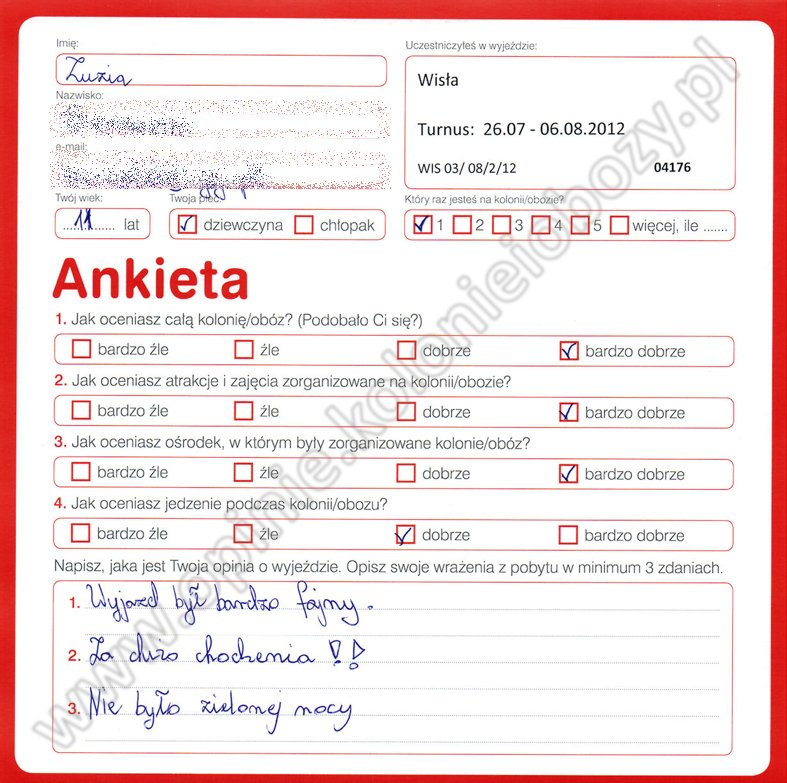 Imię:
Zuzia
Nazwisko:
e-mail:
Twój wiek:
11 lat
Twoja płeć:
dziewczyna chłopak
Uczestniczyłeś w wyjeździe:
Wisła
Turnus: 26.07 - 06.08.2012
WIS 03/ 08/2/12 04176
Który raz jesteś na kolonii/obozie?
1 2 3 4 5 więcej, ile .......
Ankieta
1. Jak oceniasz całą kolonię/obóz? (Podobało Ci się?)
bardzo źle źle dobrze bardzo dobrze
2. Jak oceniasz atrakcje i zajęcia zorganizowane na kolonii/obozie?
bardzo źle źle dobrze bardzo dobrze
3. Jak oceniasz ośrodek, w którym były zorganizowane kolonie/obóz?
bardzo źle źle dobrze bardzo dobrze
4. Jak oceniasz jedzenie podczas kolonii/obozu?
bardzo źle źle dobrze bardzo dobrze
Napisz, jaka jest Twoja opinia o wyjeździe. Opisz swoje wrażenia z pobytu w minimum 3 zdaniach.
1. Wyjazd był bardzo fajny.
2. Za dużo chodzenia !!
3. Nie było zielonej nocy
www.opinie.kolonieiobozy.pl